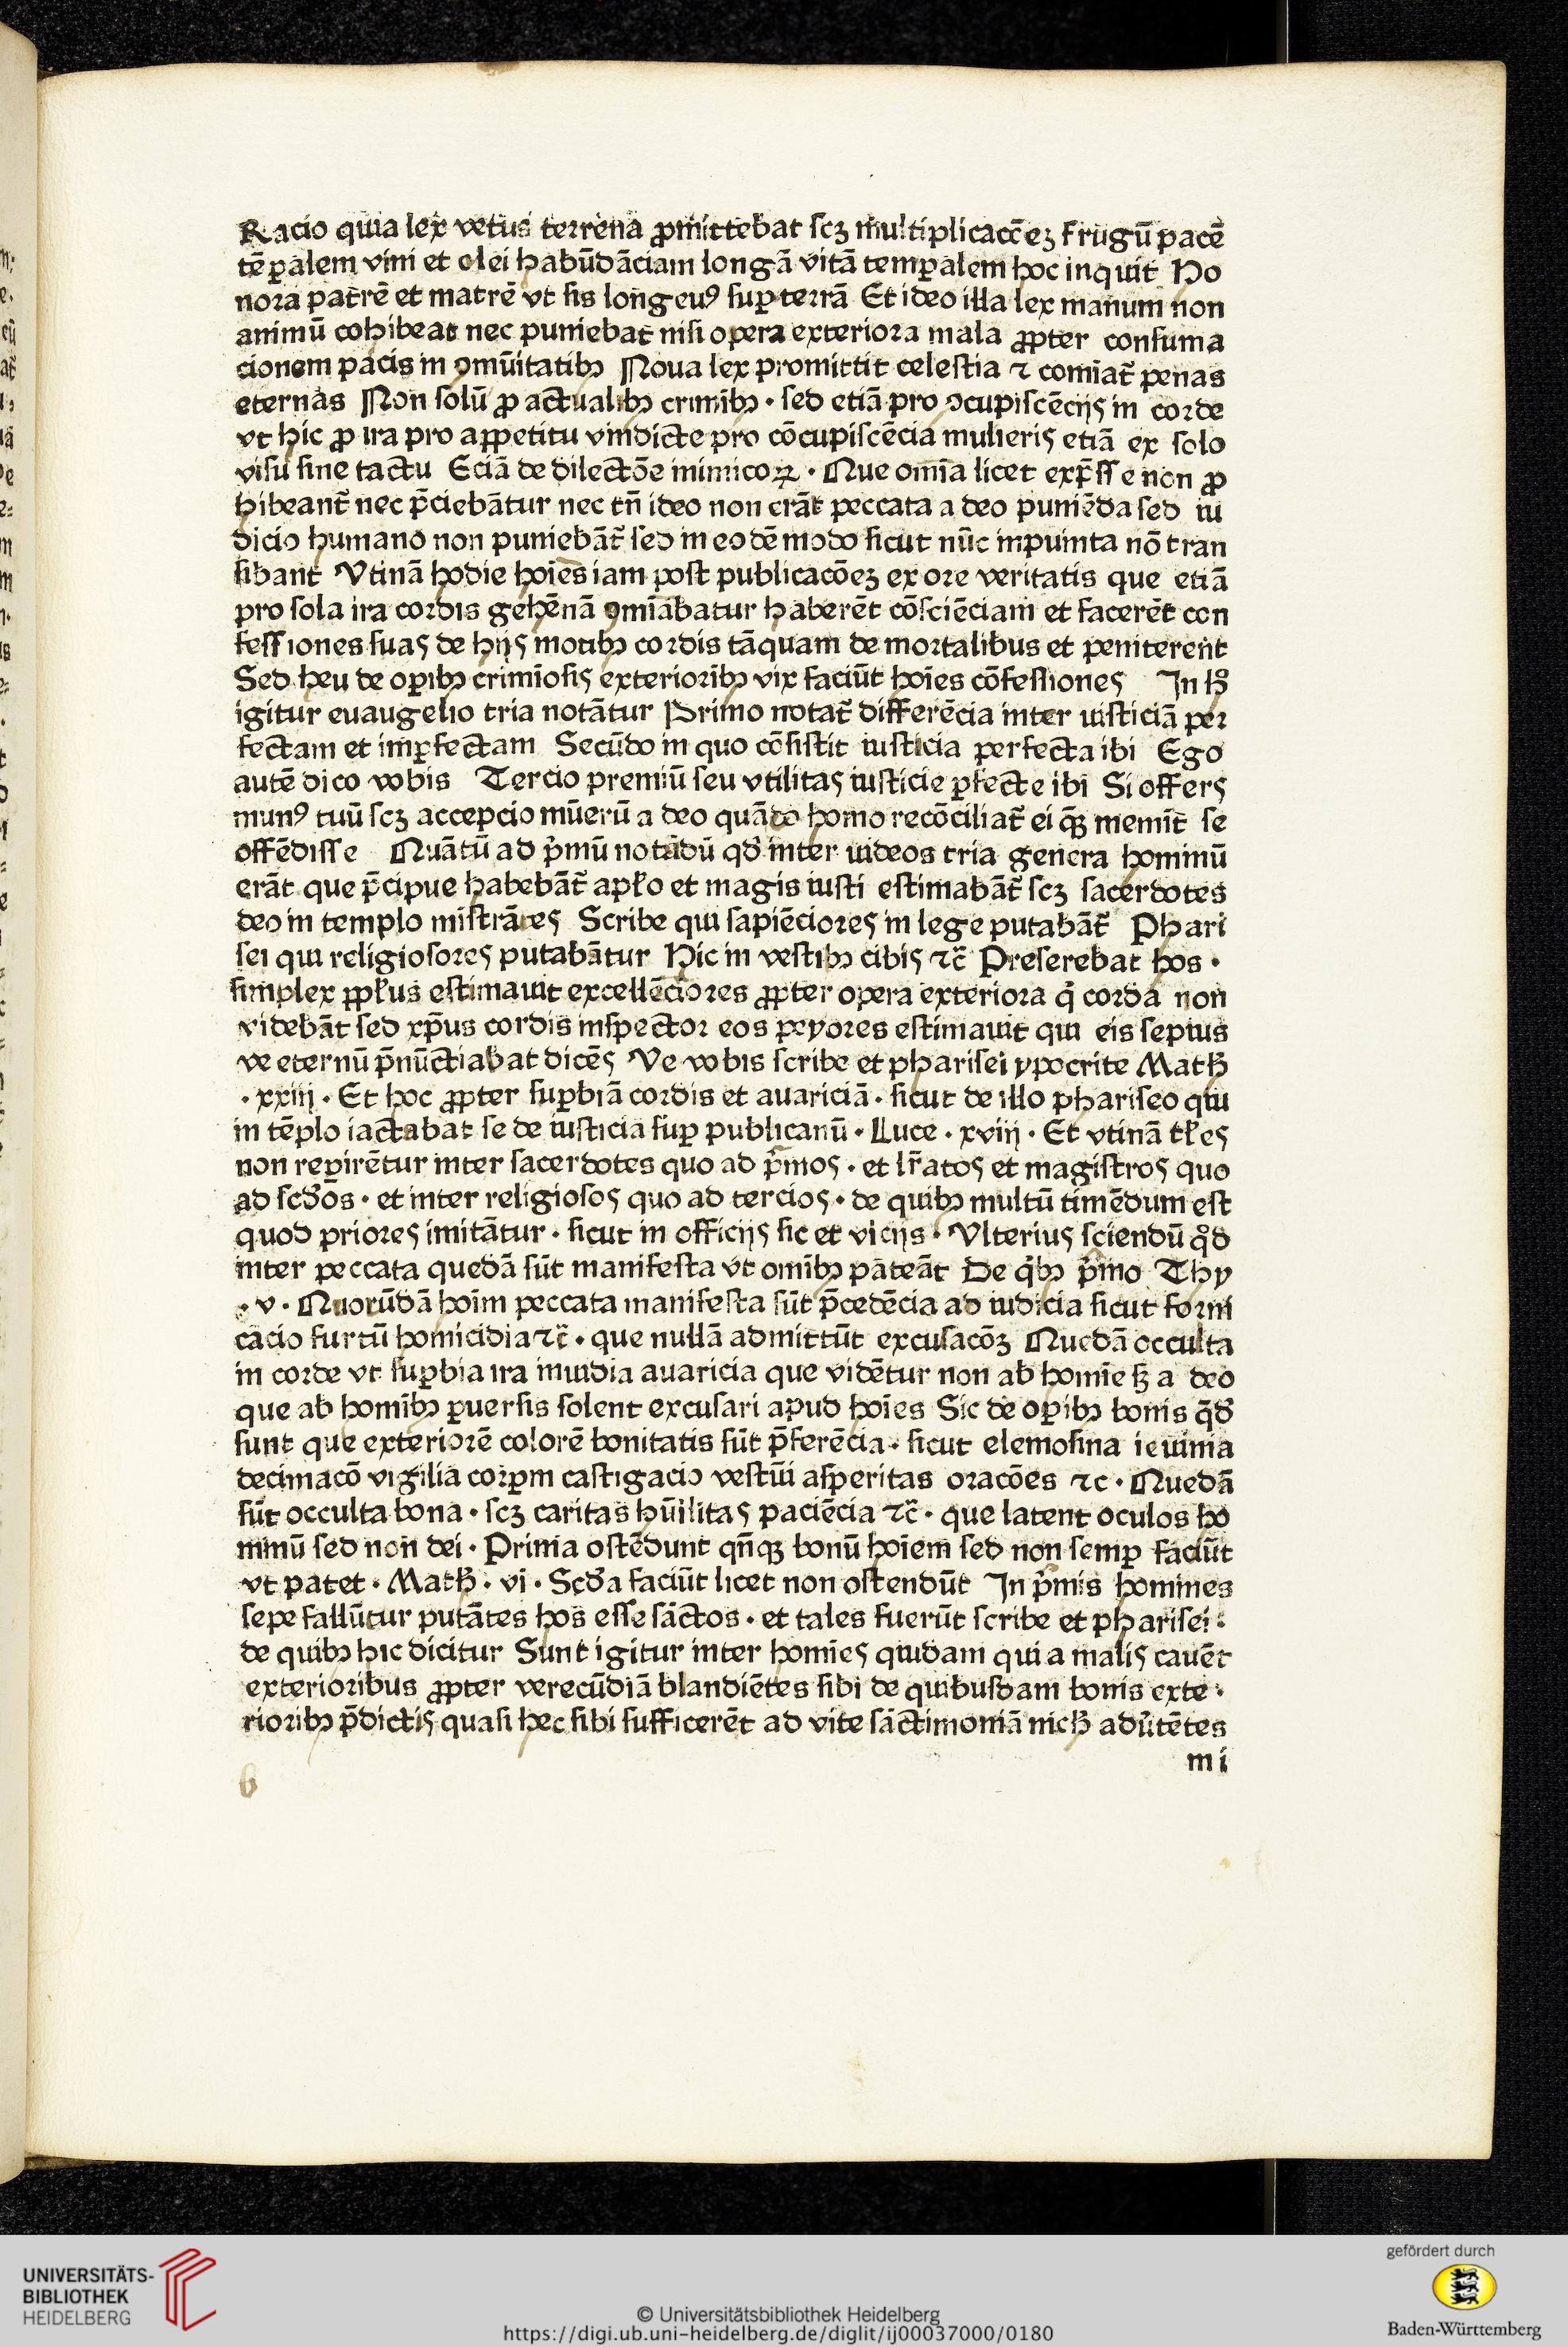 Racio quia lex vetus terrena ꝓmittebat ſcꝫ multiplicacōeꝫ frugū pacē
tēꝑalem vini et olei habūdāciam longā vitā temꝑalem hoc inquit Ho
nora patrē et matrē vt ſis longeuꝰ ſuꝑ terrā Et ideo illa lex manum non
animū cohibeat nec puniebat niſi opera exteriora mala ꝓpter conſuma
cionem pacis in ꝯmūitatibꝫ Noua lex promittit celeſtia ⁊ comīat᷑ penas
eternas Non ſolū ꝓ actualibꝫ crimībꝫ · ſed etiā pro ↄcupiſcēcijs in corde
vt hic ꝓ ira pro appetitu vindicte pro cōcupiſcēcia mulieris etiā ex ſolo
viſu ſine tactu Eciā de dilectōe inimicoꝝ · Que omīa licet exp̄ſſe non ꝓ
hibeant᷑ nec p̄ciebātur nec tn̄ ideo non erāt peccata a deo puniēda ſed iu
dicio humano non puniebāt᷑ ſed in eodē modo ſicut nūc inpuinta nō tran
ſibant Vtinā hodie hoīes iam poſt publicacōeꝫ ex ore veritatis que etiā
pro ſola ira cordis gehēnā ꝯmīabatur haberēt cōſciēciam et facerēt con
feſſiones ſuas de hijs motibꝫ cordis tāquam de mortalibus et peniterent
Sed heu de oꝑibꝫ crimīoſis exterioribꝫ vix faciūt hoīes cōfeſſiones In hͦ
igitur euaugelio tria notātur Primo notat᷑ differēcia inter iuſticiā per
fectam et imꝑfectam Secūdo in quo cōſiſtit iuſticia perfecta ibi Ego
autē dico vobis Tercio premiū ſeu vtilitas iuſticie ꝑfecte ibi Si offers
munꝰ tuū ſcꝫ accepcio mūerū a deo quādo homo recōciliat᷑ ei quꝫ memīt ſe
offēdiſſe Quātū ad pͥmū notādū qd̓ inter iudeos tria genera hominū
erāt que p̄cipue habebāt᷑ apƚo et magis iuſti eſtimabāt᷑ ſcꝫ ſacerdotes
deo in templo miſtrātes Scribe qui ſapiēciores in lege putabāt᷑ Phari
ſei qui religioſores putabātur Hic in veſtibꝫ cibis ⁊c̄ Preferebat hos ·
ſimplex ppƚus eſtimauit excellēciores ꝓpter opera exteriora qͥ corda non
videbāt ſed xp̄us cordis inſpector eos peyores eſtimauit qui eis ſepius
ve eternū p̄nūctiabat dicēs Ve vobis ſcribe et phariſei ypocrite Math̓
· xxiij · Et hoc ꝓpter ſuꝑbiā cordis et auariciā · ſicut de illo phariſeo qui
in tēplo iactabat ſe de iuſticia ſuꝑ publicanū · Luce · xviij · Et vtinā tƚes
non reꝑirētur inter ſacerdotes quo ad pͥmos · et lr̄atos et magiſtros quo
ad ſcd̓os · et inter religioſos quo ad tercios · de quibꝫ multū timēdum eſt
quod priores imitātur · ſicut in officijs ſic et vicijs · Vlterius ſciendū qͦd
inter peccata quedā ſūt manifeſta vt omībꝫ pateāt De qͥbꝫ pͥmo Thy
· v · Quorūdā hoīm peccata manifeſta ſūt p̄cedēcia ad iudicia ſicut forni
cacio furtū homicidia ⁊c̄ · que nullā admittūt excuſacōꝫ Quedā occulta
in corde vt ſuꝑbia ira inuidia auaricia que vidētur non ab homīe ſꝫ a deo
que ab homībꝫ ꝑuerſis ſolent excuſari apud hoīes Sic de oꝑibꝫ bonis q̄d̓
ſunt que exteriorē colorē bonitatis ſūt p̄ferēcia · ſicut elemoſina ieuinia
decimacō vigilia corꝑm caſtigacio veſtiū aſperitas oracōes ⁊c · Quedā
ſūt occulta bona · ſcꝫ caritas hūilitas paciēcia ⁊c̄ · que latent oculos ho
minū ſed non dei · Prima oſtēdunt qn̄qꝫ bonū hoīem ſed non ſemꝑ faciūt
vt patet · Math̓ · vi · Scd̓a faciūt licet non oſtendūt In pͥmis homines
ſepe fallūtur putātes hos eſſe ſāctos · et tales fuerūt ſcribe et phariſei :
de quibꝫ hic dicitur Sunt igitur inter homīes quidam qui a malis cauēt
exterioribus ꝓpter verecūdiā blandiētes ſibi de quibuſdam bonis exte ·
rioribꝫ p̄dictis quaſi hec ſibi ſufficerēt ad vite ſāctimoniā nich̓ aduͥtētes
mi
b
UNIVERSITÄTS-
BIBLIOTHEK
HEIDELBERG
© Universitätsbibliothek Heidelberg
https://digi.ub.uni-heidelberg.de/diglit/ij00037000/0180
gefördert durch
Baden-Württemberg